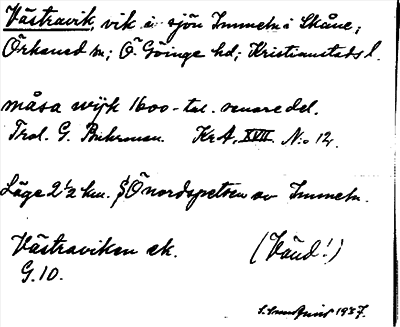 Västravik, vik i sjön Immeln i Skåne;
Örkened sn; Ö. Göinge hd; Kristianstads l.
måsa wijk 1600-tal. senare del.
Trol. G. Buhrman. KrA. XVII No 12.
Läge 2 1/2 km. SÖ nordspetsen av Immeln.
Västraviken ek. (Vänd!)
G.10.
1937.